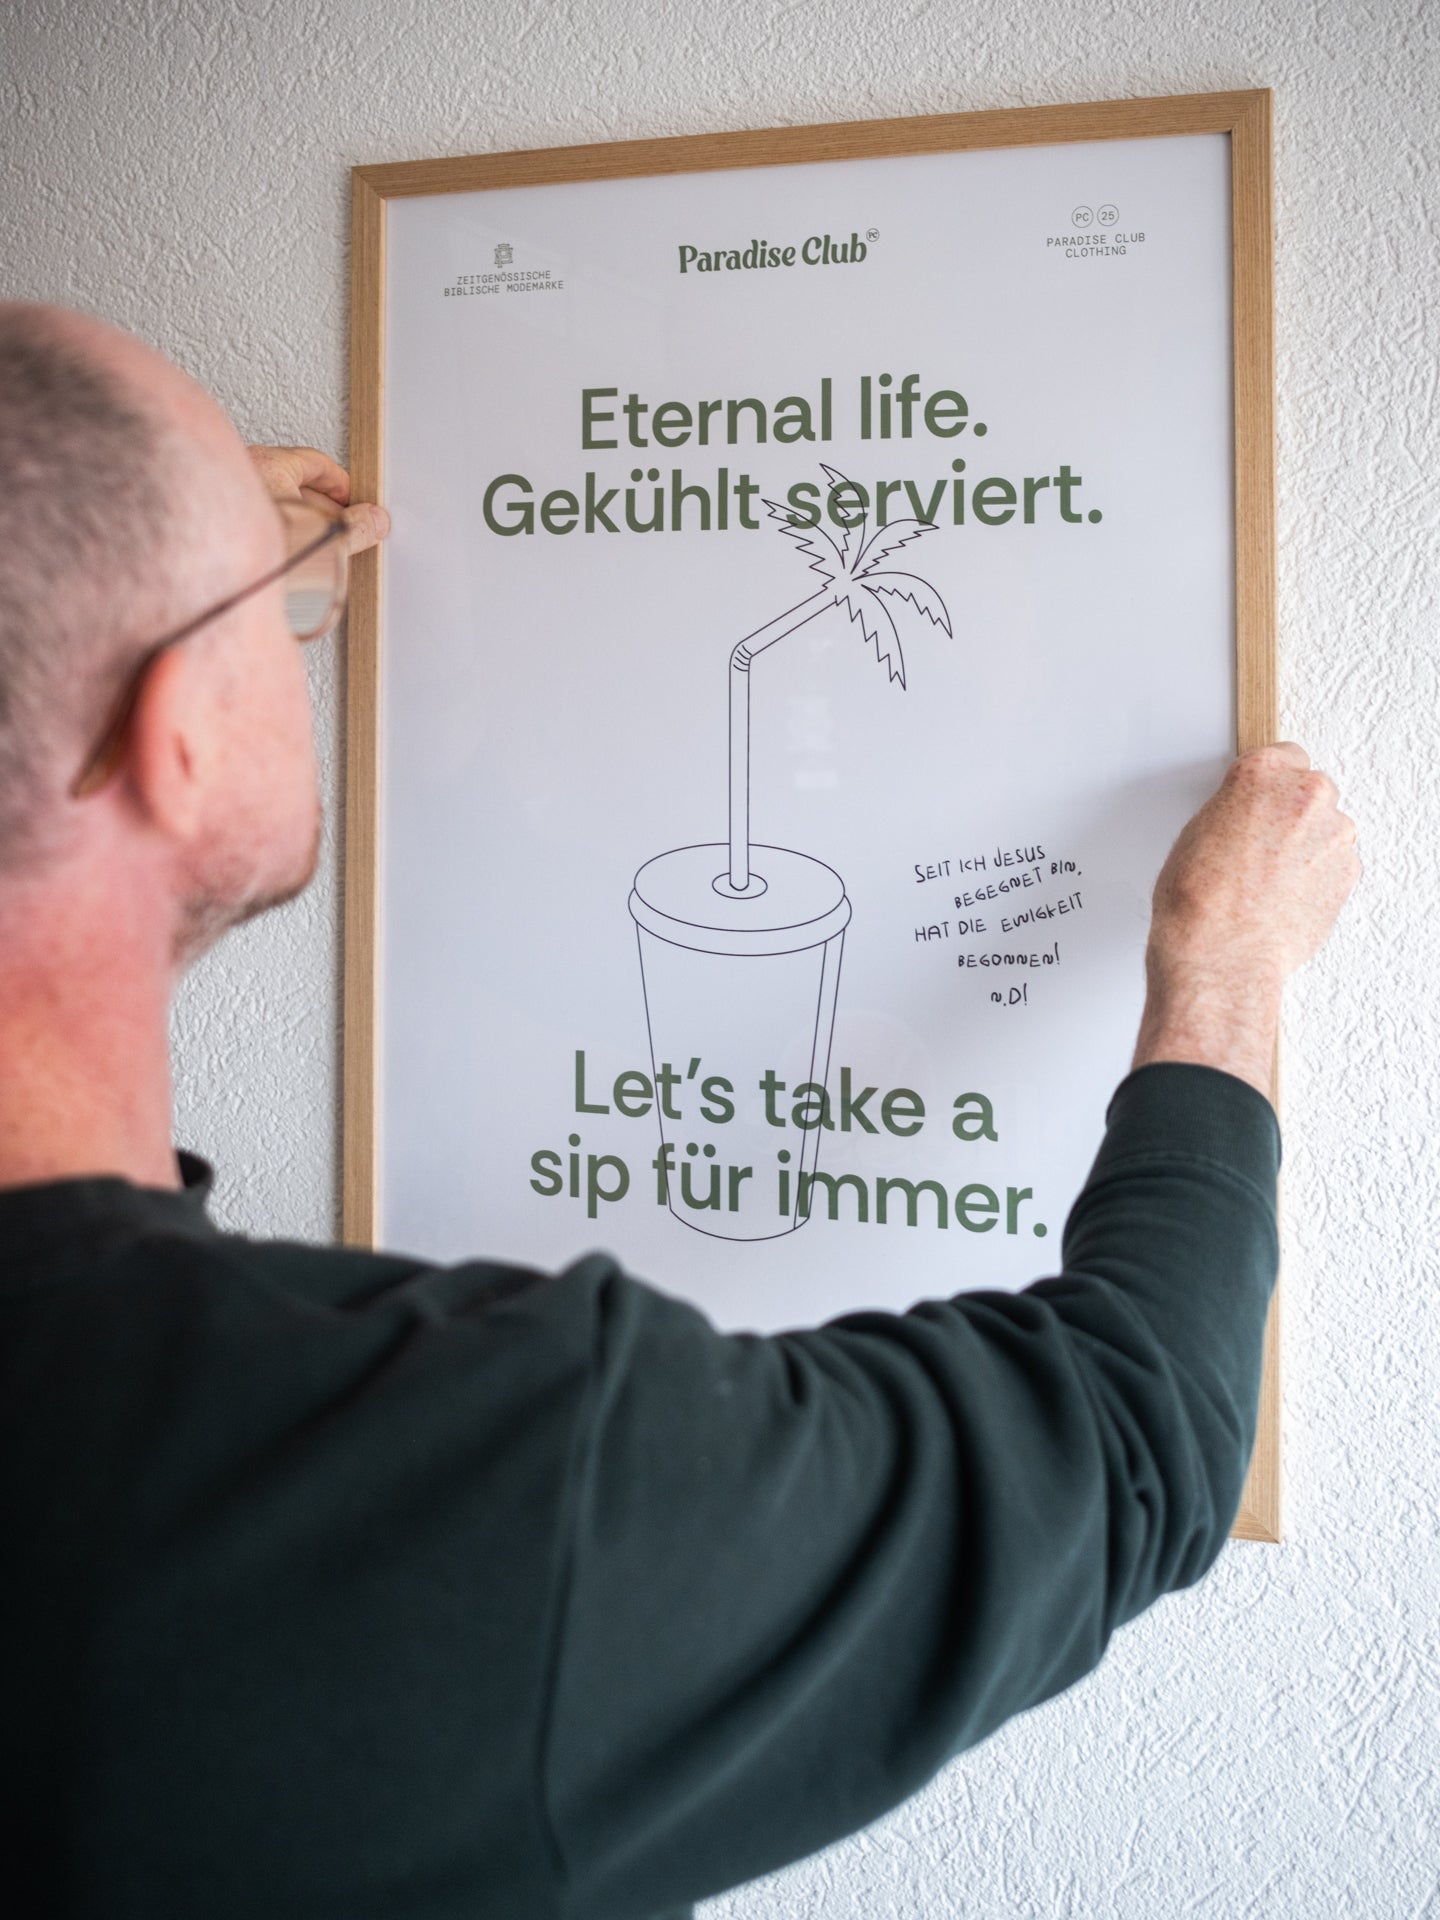 ZEITGENÖSSISCHE
BIBLISCHE MODEMARKE
Paradise Club PC
PC 25
PARADISE CLUB
CLOTHING
Eternal life.
Gekühlt serviert.
SEIT ICH JESUS
BEGEGNET BIN,
HAT DIE EWIGKEIT
BEGONNEN!
N.D!
Let's take a
sip für immer.